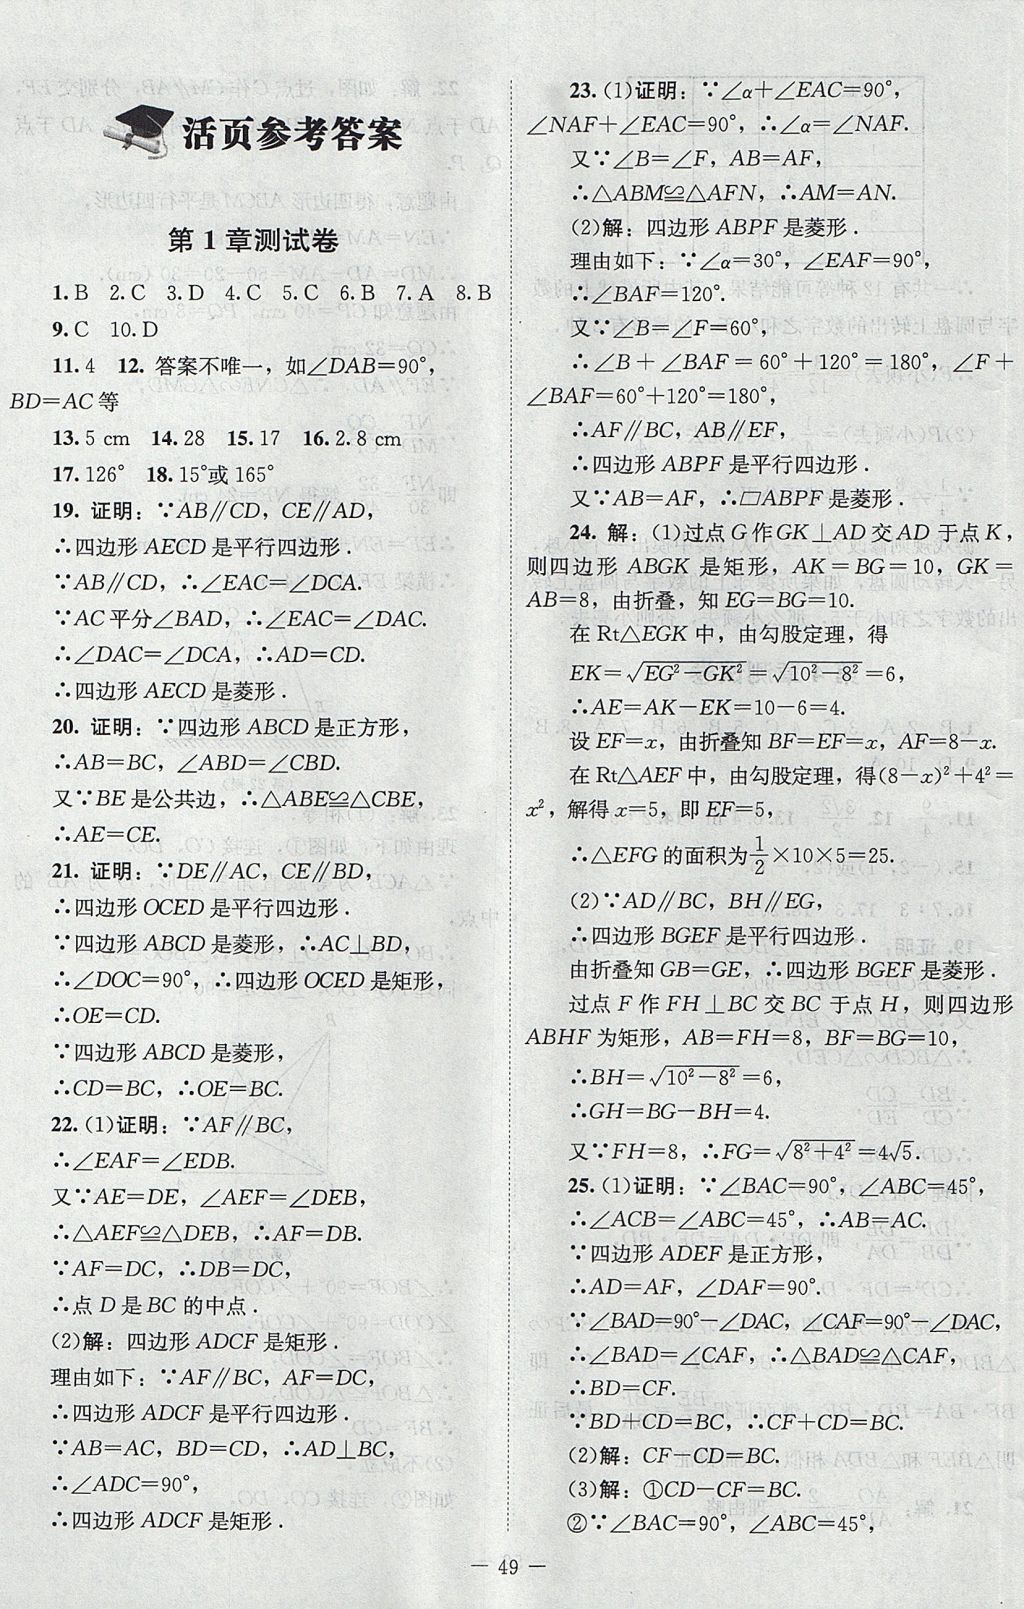 活页参考答案
第1章测试卷
1.B 2.C 3.D 4.C 5.C 6.B 7.A 8.B
9.C 10.D
11.4 12. 答案不唯一，如∠DAB=90°，
BD=AC等
13.5 cm 14.28 15.17 16.2.8 cm
17.126° 18.15°或165°
19. 证明：∵AB∥CD，CE∥AD，
∴四边形AECD是平行四边形.
∵AB∥CD，∴∠EAC=∠DCA.
∵AC平分∠BAD，∴∠EAC=∠DAC.
∴∠DAC=∠DCA，∴AD=CD.
∴四边形AECD是菱形.
20. 证明：∵四边形ABCD是正方形，
∴AB=BC，∠ABD=∠CBD.
又∵BE是公共边，∴△ABE≌△CBE，
∴AE=CE.
21. 证明：∵DE∥AC，CE∥BD，
∴四边形OCED是平行四边形.
∵四边形ABCD是菱形，∴AC⊥BD，
∴∠DOC=90°，∴四边形OCED是矩形，
∴OE=CD.
∵四边形ABCD是菱形，
∴CD=BC，∴OE=BC.
22.(1)证明：∵AF∥BC，
∴∠EAF=∠EDB.
又∵AE=DE，∠AEF=∠DEB，
∴△AEF≌△DEB，∴AF=DB.
∵AF=DC，∴DB=DC，
∴点D是BC的中点.
(2)解：四边形ADCF是矩形.
理由如下：∵AF∥BC，AF=DC，
∴四边形ADCF是平行四边形.
∵AB=AC，BD=CD，∴AD⊥BC，
∴∠ADC=90°，
∴四边形ADCF是矩形.
23.(1)证明：∵∠α+∠EAC=90°，
∠NAF+∠EAC=90°，∴∠α=∠NAF.
又∵∠B=∠F，AB=AF，
∴△ABM≌△AFN，∴AM=AN.
(2)解：四边形ABPF是菱形.
理由如下：∵∠α=30°，∠EAF=90°，
∴∠BAF=120°.
又∵∠B=∠F=60°，
∴∠B+∠BAF=60°+120°=180°，∠F+
∠BAF=60°+120°=180°，
∴AF∥BC，AB∥EF，
∴四边形ABPF是平行四边形.
又∵AB=AF，∴□ABPF是菱形.
24. 解：(1)过点G作GK⊥AD交AD于点K，
则四边形ABGK是矩形，AK=BG=10，GK=
AB=8，由折叠，知EG=BG=10.
在Rt△EGK中，由勾股定理，得
EK=√(EG²-GK²)=√(10²-8²)=6，
∴AE=AK-EK=10-6=4.
设EF=x，由折叠知BF=EF=x，AF=8-x.
在Rt△AEF中，由勾股定理，得(8-x)²+4²=
x²，解得x=5，即EF=5，
∴△EFG的面积为1/2×10×5=25.
(2)∵AD∥BC，BH∥EG，
∴四边形BGEF是平行四边形.
由折叠知GB=GE，∴四边形BGEF是菱形.
过点F作FH⊥BC交BC于点H，则四边形
ABHF为矩形，AB=FH=8，BF=BG=10，
∴BH=√(10²-8²)=6，
∴GH=BG-BH=4.
又∵FH=8，∴FG=√(8²+4²)=4√5.
25.(1)证明：∵∠BAC=90°，∠ABC=45°，
∴∠ACB=∠ABC=45°，∴AB=AC.
∵四边形ADEF是正方形，
∴AD=AF，∠DAF=90°.
∵∠BAD=90°-∠DAC，∠CAF=90°-∠DAC，
∴∠BAD=∠CAF，∴△BAD≌△CAF，
∴BD=CF.
∵BD+CD=BC，∴CF+CD=BC.
(2)解：CF-CD=BC.
(3)解：①CD-CF=BC.
②∵∠BAC=90°，∠ABC=45°，
— 49 —